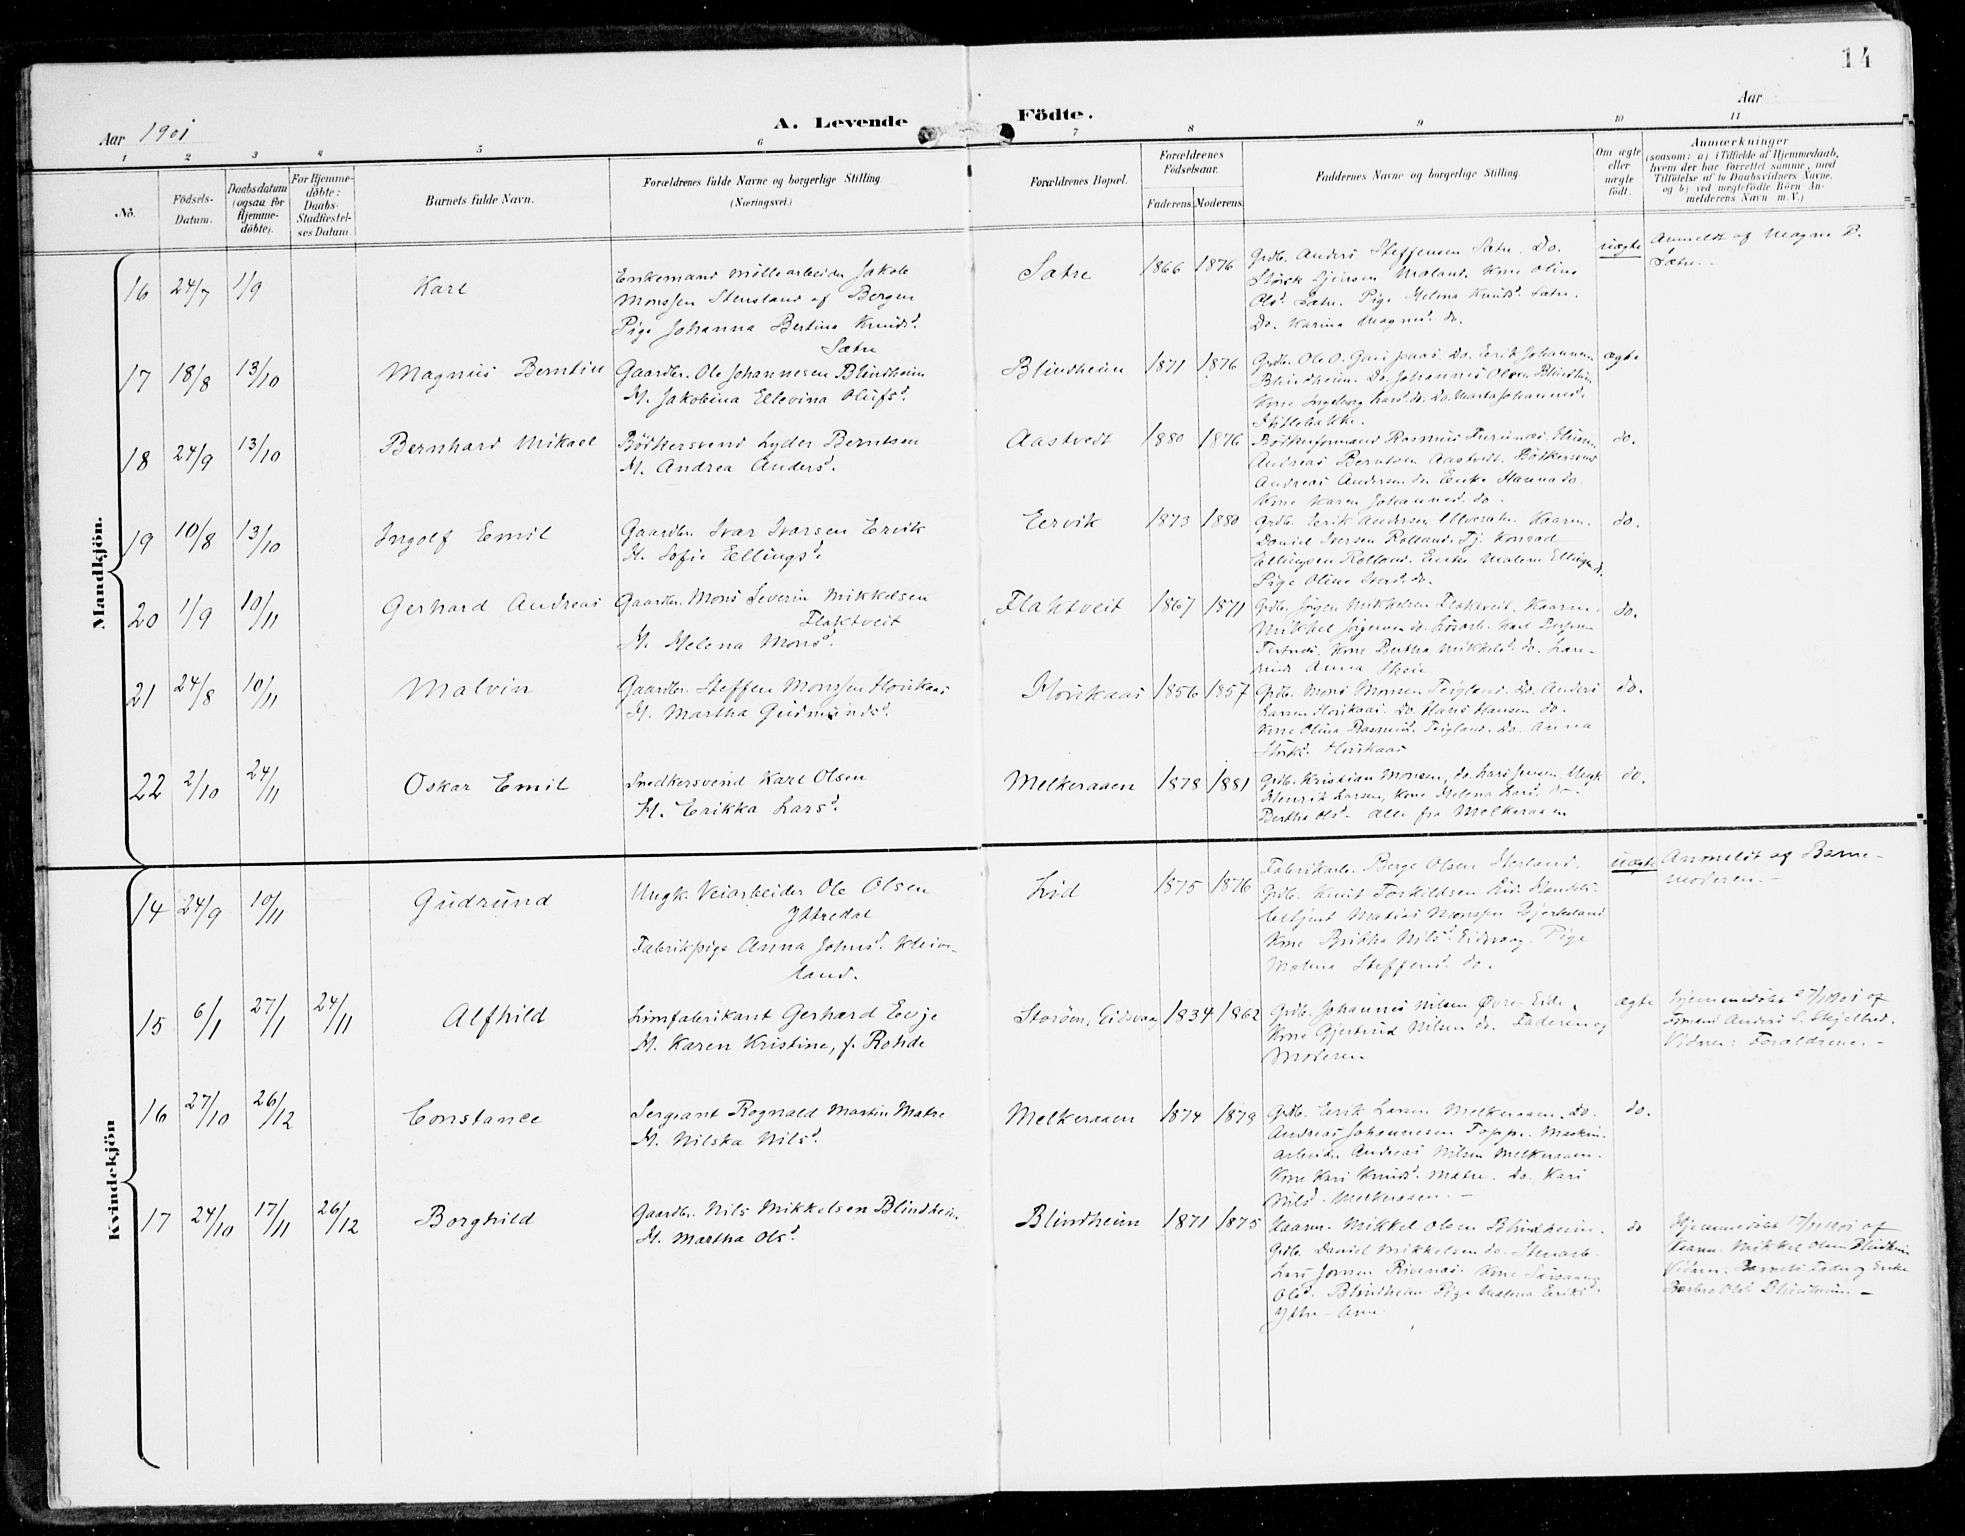 14
Aar 1901
A. Levende Födte.
Aar
1 2 3 4 5 6 7 8 9 10 11
No.
Födsels-Datum.
Daabsdatum (ogsaa for Hjemme-døbte).
For Hjemme-døbte: Daabs-Stadfæstel-ses Datum.
Barnets fulde Navn.
Forældrenes fulde Navne og borgerlige Stilling (Næringsvei.)
Forældrenes Bopæl.
Forældrenes Födselsaar.
Faderens. Moderens.
Faddernes Navne og borgerlige Stilling.
Om ægte eller uægte födt.
Anmærkninger
(saasom: a) i Tilfælde af Hjemmedaab,
hvem der har forrettet samme, med
Tilföielse af to Daabsvidners Navne,
og b) ved uægtefödte Börn An-
melderens Navn m. V.)
Mandkjön.
16 24/7 1/9 Karl
Enkemand Möllearbeider Jakob
Monssen Stensland af Bergen
Pige Johanna Bertina Knudsd.
Sætre
Sætre 1866 1876
Grdb. Anders Steffensen Sætre. Do.
Maland. Kone Olina
Olsd. Sætre. Pige Helena Knudsd. Sætre.
Do. Karina Magnesd. do.
uægte
Anmeldt af Magne P.
Sætre.
17 18/8 13/10 Magnus Berntin
Gaardbr. Ole Johannesen Blindheim
H. Jakobina Ellevina Olufsd.
Blindheim 1871 1876
Grdb. Ole O. Do. Eerik Johannesen
Blindheim. Do. Johannes Olsen Blindheim
Kone Ingeborg Larsd. do. Do. Marta Johannesd.
ægte
18 24/9 13/10 Bernhard Mikael
Bödkersvend Lyder Berntsen
H. Andrea Andersd.
Aastvedt 1880 1876
Bödkerformand Rasmus
Andreas Berntsen Aastvedt. Bödkersvend
Andreas Andersen do. Enke Hanna do.
Kone Karen Johannesd. do.
do.
19 10/8 13/10 Ingolf Emil
Gaardbr. Ivar Ivarsen Eervik
H. Sofie Ellingsd.
Eervik 1873 1880
Grdb. Eerik Andersen Kaarm.
Daniel Iversen Rolland. Tj. Konrad
Ellingsen Rolland. Enke Malene Ellingsd. do.
Pige Oline Iversd. do.
do.
20 1/9 10/11 Gerhard Andreas
Gaardbr. Mons Severin Mikkelsen
Flaktveit
H. Helena Monsd.
Flaktveit 1867 1871
Grdb. Jörgen Mikkelsen Flaktveit. Kaarm.
Mikkel Jörgensen do. Karl
Kone Bertha Mikkelsd. do.
Anna Skeie
do.
21 24/8 10/11 Malvin
Gaardbr. Steffen Monssen Horikaas
H. Martha Gudmundsd.
Horikaas 1856 1857
Grdb. Mons Monsen Teigland. Do. Anders
Larsen Horikaas. Do. Hans Hansen do.
Kone Olina Rasmusd. Teigland. Do. Anna
Horikaas
do.
22 2/10 24/11 Oskar Emil
Snedkersvend Karl Olsen
H. Erikka Larsd.
Melkeraaen 1878 1881
Grdb. Kristian Monsen, do. Lars Jensen, Ungk.
Henrik Larsen, Kone Helena Larsd. do.
Bertha Olsd. - alle fra Melkeraaen
do.
Kvindekjön
14 24/9 10/11 Gudrund
Ungk. Veiarbeider Ole Olsen
Yttredal
Fabrikpige Anna Johnsd. Kleive-
land.
Lid 1875 1876
Fabrikarb. Berge Olsen
Grdb. Knut Torkildsen Lid. Handels-
betjent Matias Monssen
Kone Britha Nilsd. Eidsvaag. Pige
Malena Steffensd. do.
uægte
Anmeldt af Barne-
moderen. -
15 6/1 27/1 24/11 Alfhild
Limfabrikant Gerhard Evje
H. Karen Kristine, f. Rohde
Storöen, Eidsvaag 1834 1862
Grdb. Johannes Nilsen Övre-Eide,
Kone Gjertrud Nilsen do. Faderen og
Moderen
ægte
Hjemmedöbt 27/1 1901 af
Anders S. Skjelbred.
Vidner: Forældrene. -
16 27/10 26/12 Constance
Sergeant Rognald Martin Matre
H. Nilska Nilsd.
Melkeraaen 1874 1879
Grdb. Eerik Larsen Melkeraaen. Do.
Andreas Johannesen Toppe. Maskin-
arbeider Andreas Nilsen Melkeraaen.
Kone Kari Knudsd. Matre. Do. Kari
Nilsd. Melkeraaen. -
do.
17 24/10 17/11 26/12 Borghild
Gaardbr. Nils Mikkelsen Blindheim
H. Martha Olsd.
Blindheim 1871 1875
Kaarm. Mikkel Olsen Blindheim.
Grdb. Daniel Mikkelsen do. Stenarb.
Lars Jonsen Kone
Olsd. Blindheim Pige Malena Eriksd.
Ytre-Arne
do
Hjemmedöbt 17/11 1901 af
Kaarm. Mikkel Olsen Blindheim
Vidner: Barnets Fader og Enke
Barbro Olsd. Blindheim -